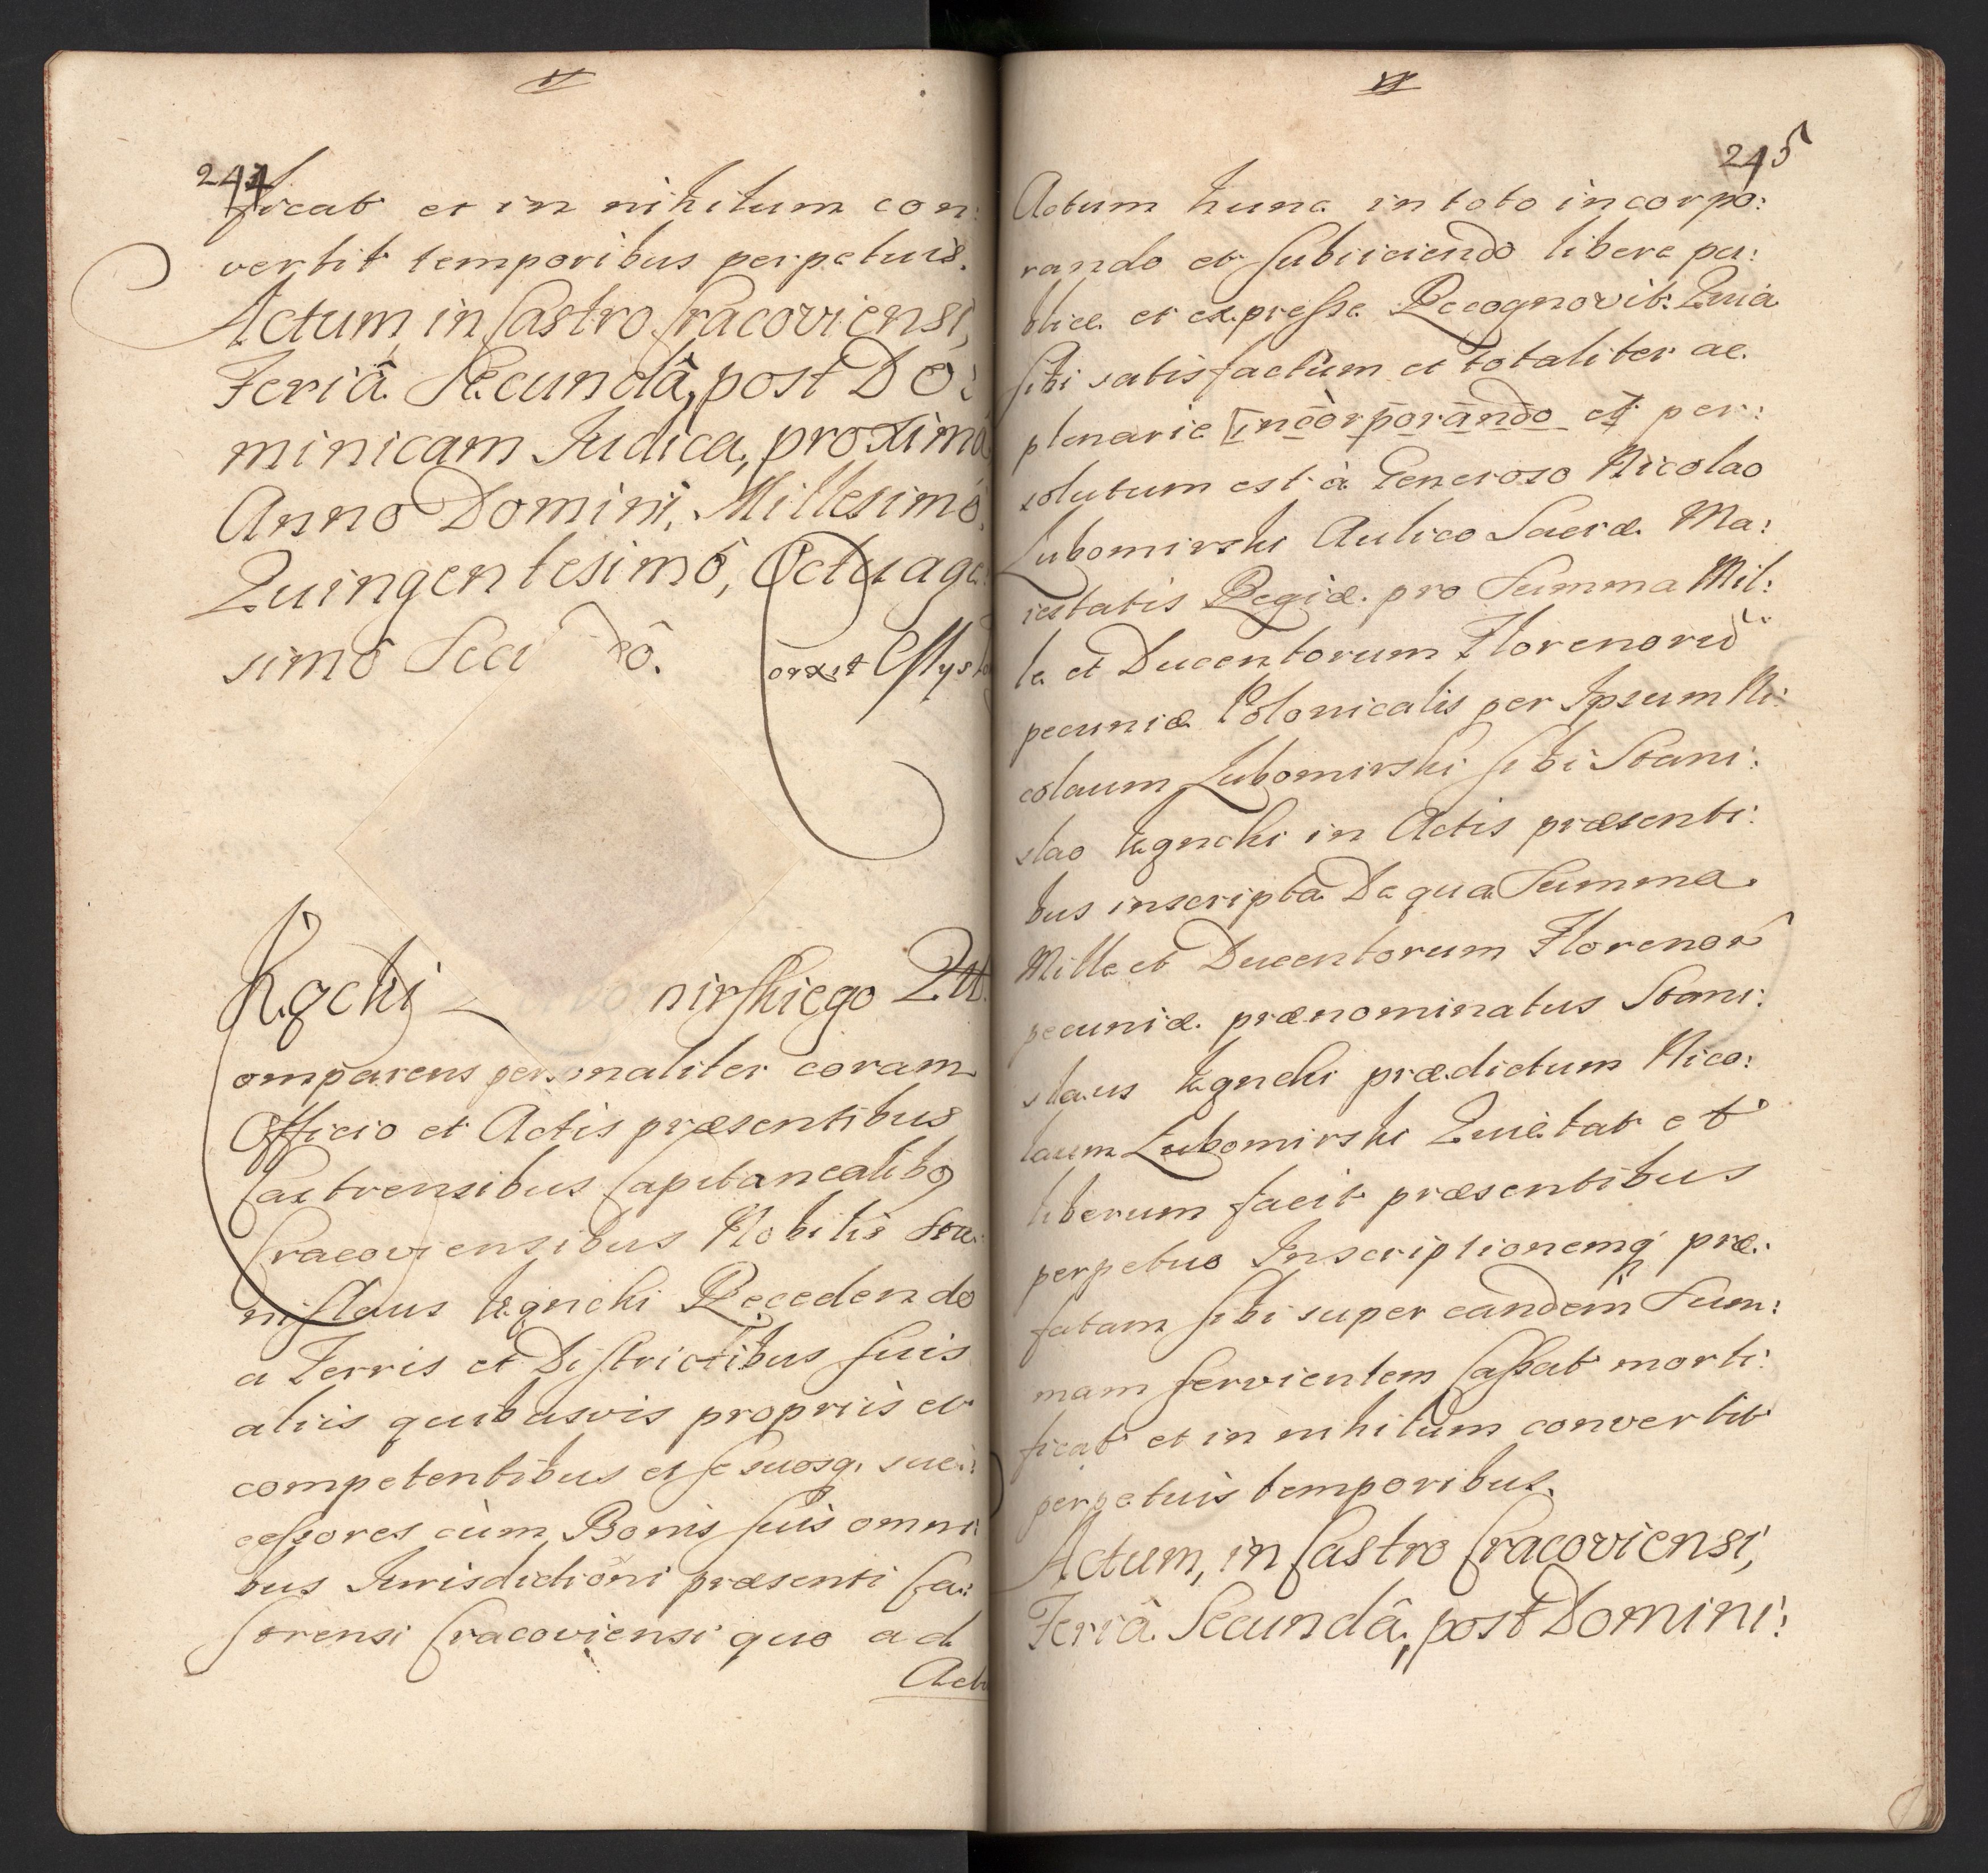 244
ficat et in nihilum con:
vertit temporibus perpetuis.
Actum, in Castro Cracoviensi,
Feriâ Secundâ, post Do:
minicam Judica, proximâ
Anno Domini, Millesimô,
Quingentesimô, Octuage:
simô Secundô.
Kgchi Lubomirskiego Qu
omparens personaliter coram
Officio et Actis præsentibus
Castrensibus Capitanealibq
Cracoviensibus Nobilis Sta:
nislaus Kgnchi Recedendo
a Terris et Districtibus suis
aliis quibusvis propriis et
competentibus et se suosq. suc:
cessores cum Bonis suis omni:
bus Jurisdictioni præsenti Ca:
strensi Cracoviensi quo ad
Actu
245
Actum hunc in toto incorpo:
rando et subiiciendo libere pu:
blice et expresse Recognovit. Quia
sibi satisfactum et totaliter ac
plenarie incorporando et per:
solutum est à Generoso Nicolao
Lubomirski Aulico Sacræ Ma:
iestatis Regiæ pro Summa Mil:
le et Ducentorum Florenorũ
pecuniæ Polonicalis per Ipsum Ni:
colaum Lubomirski sibi Stani:
slao Kgnchi in Actis præsenti:
bus inscripta De qua Summa
Mille et Ducentorum Florenor
pecuniæ prænominatus Stani:
slaus Kgnchi prædictum Nico:
laum Lubomirski Quietat et
liberum facit præsentibus
perpetuo Inscriptionemq præ:
fatam sibi super eandem Sum:
mam servientem Cassat morti:
ficat et in nihilum convertit
perpetuis temporibus.
Actum, in Castro Cracoviensi,
Feriâ Secundâ, post Domini: